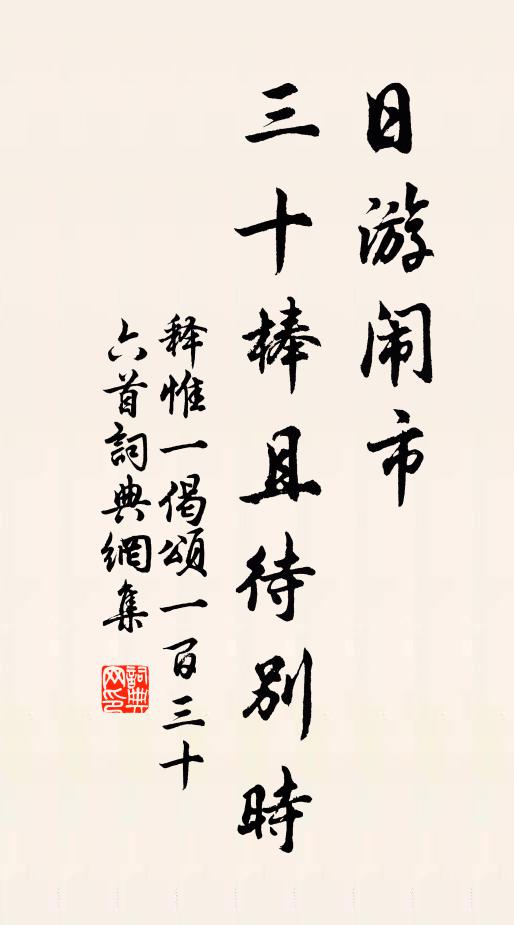 日游闹市
三十棒且待别時
释惟一偈頌一百三十
六首詞典網集
詞典网印